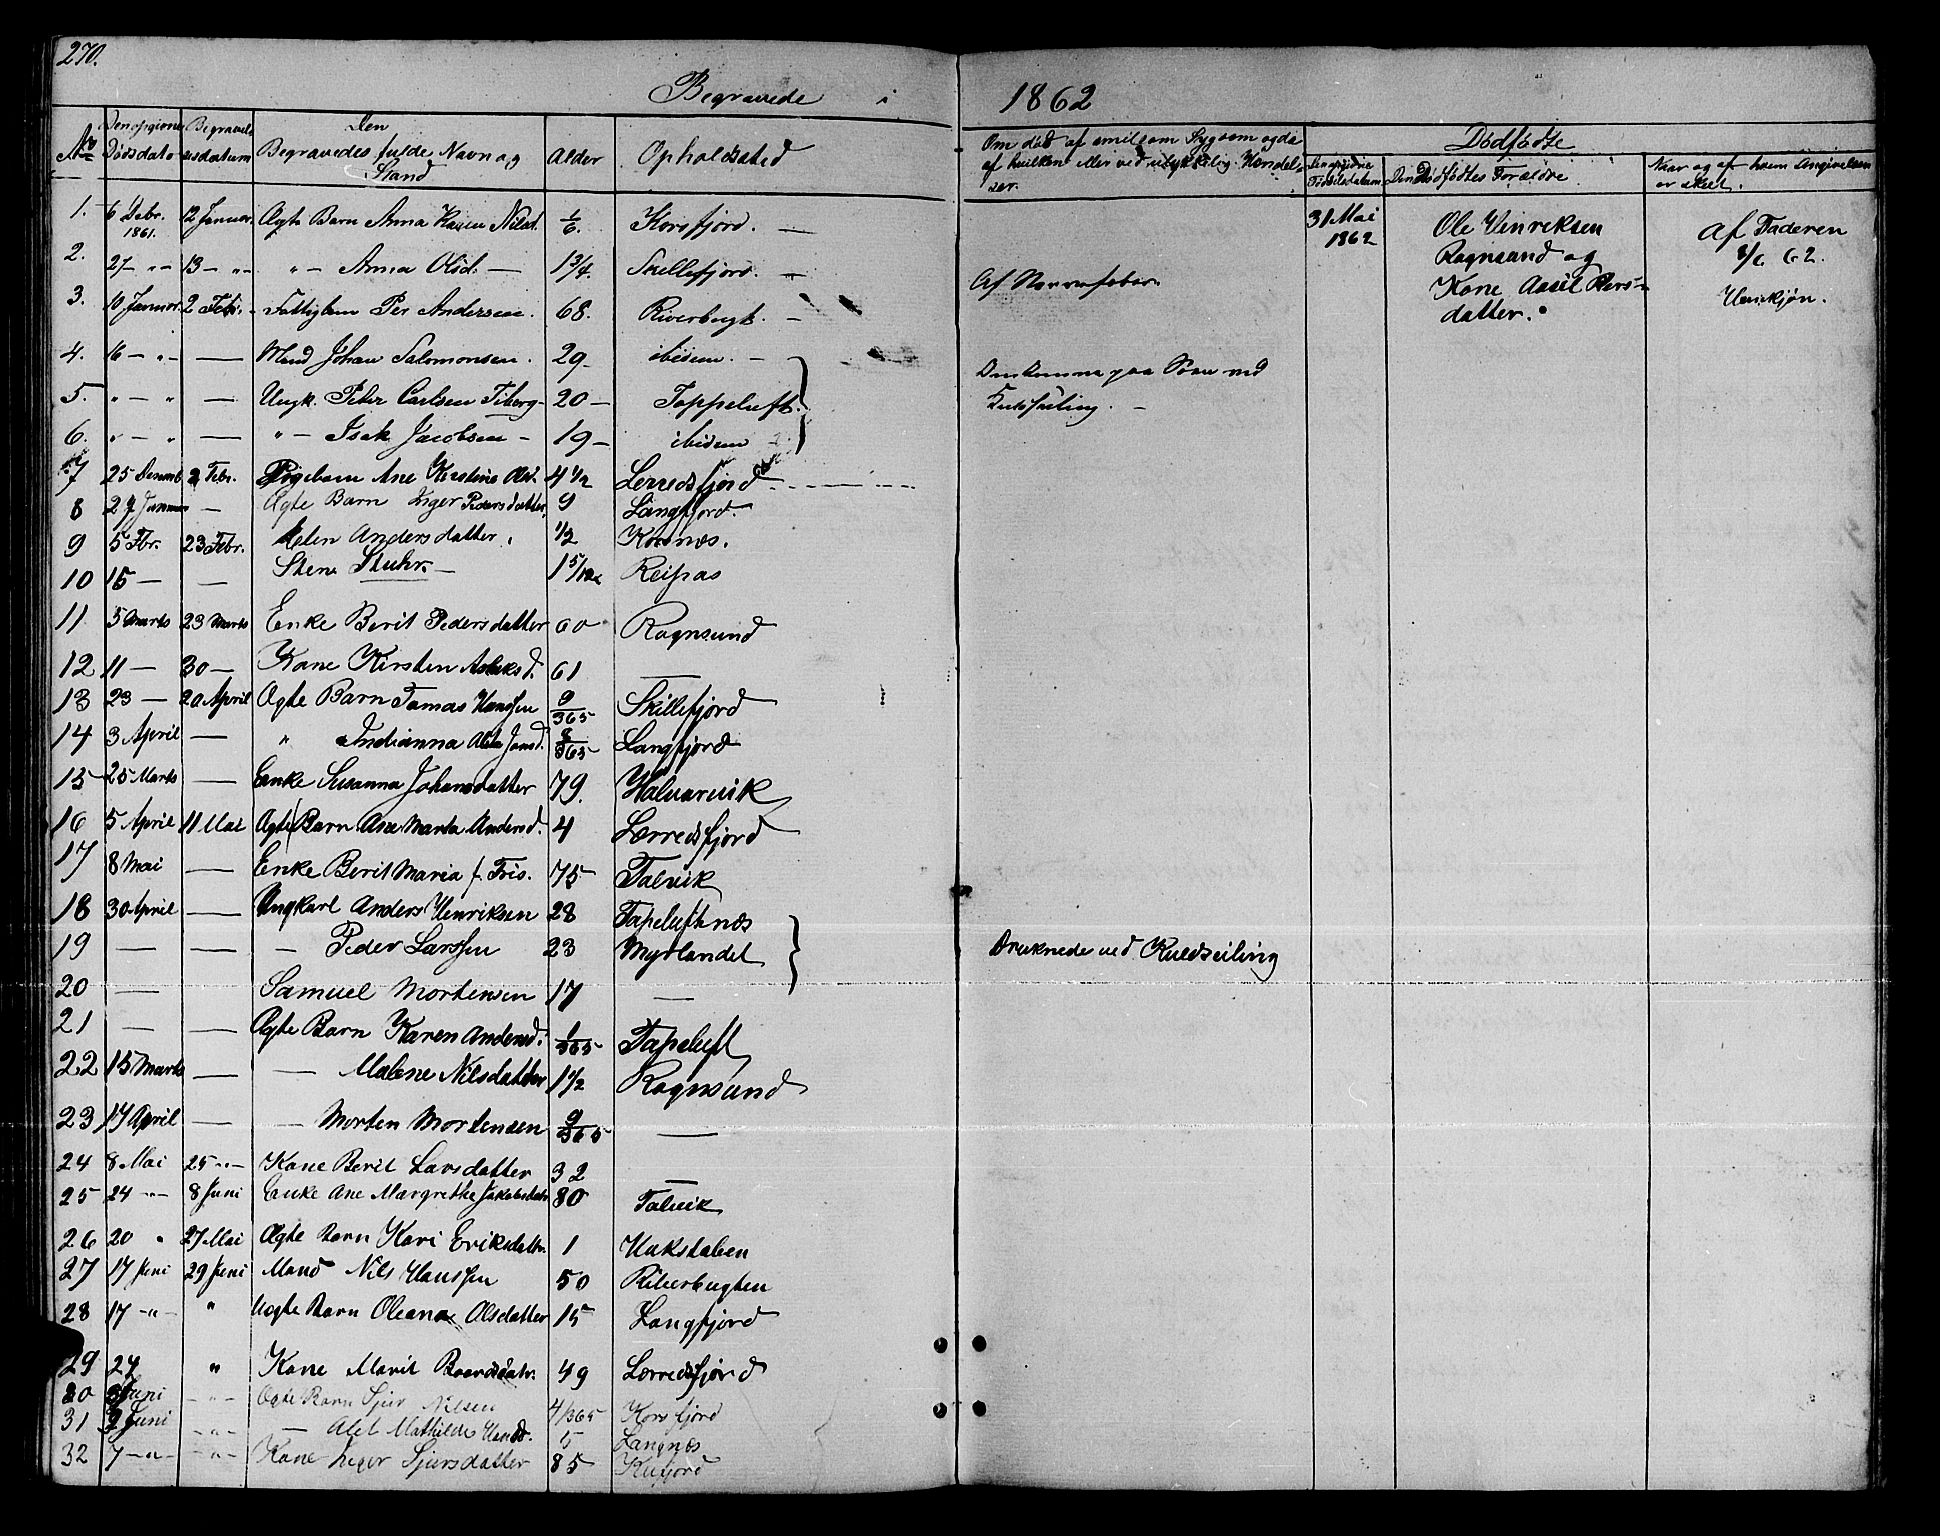 270.
Begravede i 1862
No
Den opgivne Dødsdato
Begravelsesdatum
Den Begravedes fulde Navn og Stand
Alder
Opholdssted
Om død af smitsom Sygdom og da af hvilken eller ved ulykkelig Hændelser.
Dødfødte
Den opgivne Fødselsdatum
Den Dødfødtes Forældre
Naar og af hvem Angivelsen er skeet.
1. 6 Debr. 1861. 12 Januar Ægte Barn Anna Karen Nilsd. 1/6. Korsfjord. —
2. 27 — " — 13 — " — " — Anna Olsd. — 1 3/4. Skillefjord. —
3. 10 Januar. 2 Febr. Fattiglem Per Andersen. 68. Riverbugt. —
4. 16 — " — — Mand Johan Salomonsen. 29 - ibidem. —
5. " — " — Ungk. Peter Carlsen Fiborg - 20 — Tappeluft.
6. " — " — " — Isak Jacobsen - 19 — ibidem
7 25 Decemb 2 Febr. Pigebarn Ane Kirstine Olsd. 4 1/2 Lerredsfjord
8 27 Januar — Ægte Barn Inger Pedersdatter, 9 Langfjord.
9 5 Fbr. 23 Febr. Elen Andersdatter. 1/2 Korsnæs.
10 15 — — Stene Stuhr. — 1 5/12 Reipas
11 5 Marts 23 Marts Enke Berit Pedersdatter 60 Rognsund
12 11 — 30 — Kone Kirsten Aslaksd. 61 —
13 23 — 20 April Ægte Barn Tomas Hanssen 9/365 Skillefjord
14 3 April — " Indianna Jansd. 8/365 Langfjord
15 25 Marts — Enke Susanna Johansdatter 79. Halvarvik
16 5 April 11 Mai Ægte Barn Ane Marta Andersd. 4 Lerredsfjord
17 8 Mai — Enke Berit Maria f. Fris. 75 Talvik
18 30 April — Ungkarl Anders Henriksen 28 Tapeluftnæs
19 — — — Peder Larssen 23 Myrlandet
20 — Samuel Mortensen 17 —
21 — — Ægte Barn Karen Andersd. 1/365 Tapeluft
22 15 Marts — — Malene Nilsdatter 1 1/2 Rognsund
23 17 April — — Morten Mortensen 9/365 —
24 8 Mai 25 " — Kone Berit Larsdatter 32 —
25 24 — " — 8 Juni Enke Ane Margrethe Jakobsdatr 80 Talvik
26 20 " 27 Mai Ægte Barn Kari Eriksdattr. 1 Hakstaben
27 17 Juni 29 Juni Mand Nils Hanssen 50 Riverbugten
28 17 — " — " Uægte Barn Oleana Olsdatter 15 Langfjord
29 27 " Kone Marit Baardsdatr. 49 Lerredsfjord
30 Juni — " — Ægte Barn Sjur Nilsen 4/365 Korsfjord
31 2 Juni — " — — Alet Mathilde Hansd. 5 Langnæs
32 7 — " — — " — Kone Inger Sjursdatter 85 Kufjord
Af Nervefeber.
Omkomne paa Søen ved
Kuldseiling. —
Druknede ved Kuldseiling
31 Mai
1862
Ole Henriksen
Rognsund og
Kone Pers-
datter.
Af Faderen
62.